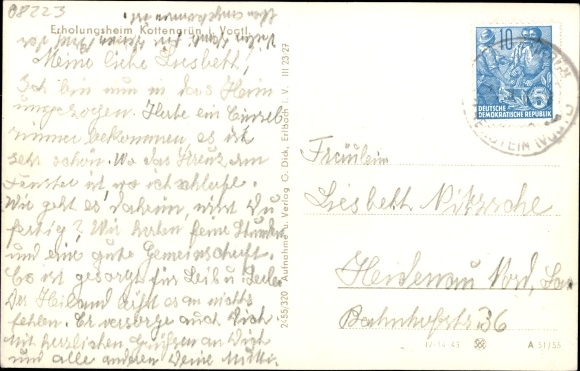 08223
Erholungsheim Kottengrün i. Vogtl.
Meine liebe Liesbeth!
Ich bin nun in das Heim
umgezogen. Habe ein Einzel-
zimmer bekommen es ist
sehr schön. Wo das Kreuz am
Fenster ist, wo ich schlafe.
Wie geht es daheim, wirst Du
fertig? Wir hatten feine Stunden
und eine gute Gemeinschaft.
Es ist gesorgt für Leib u. Seele.
Der Heiland läßt es an nichts
fehlen. Er versorge auch Dich
Mit herzlichen Grüßen an Dich
und alle anderen Deine Mutti.
2-55/320 Aufnahme u. Verlag O. Dick, Erlbach i. V. III 23/27
10
DEUTSCHE
DEMOKRATISCHE REPUBLIK
5
(VOGTL)
Fräulein
Liesbeth Nitzsche
Heidenau Nord,
Bahnhofstr. 36
A 51/55